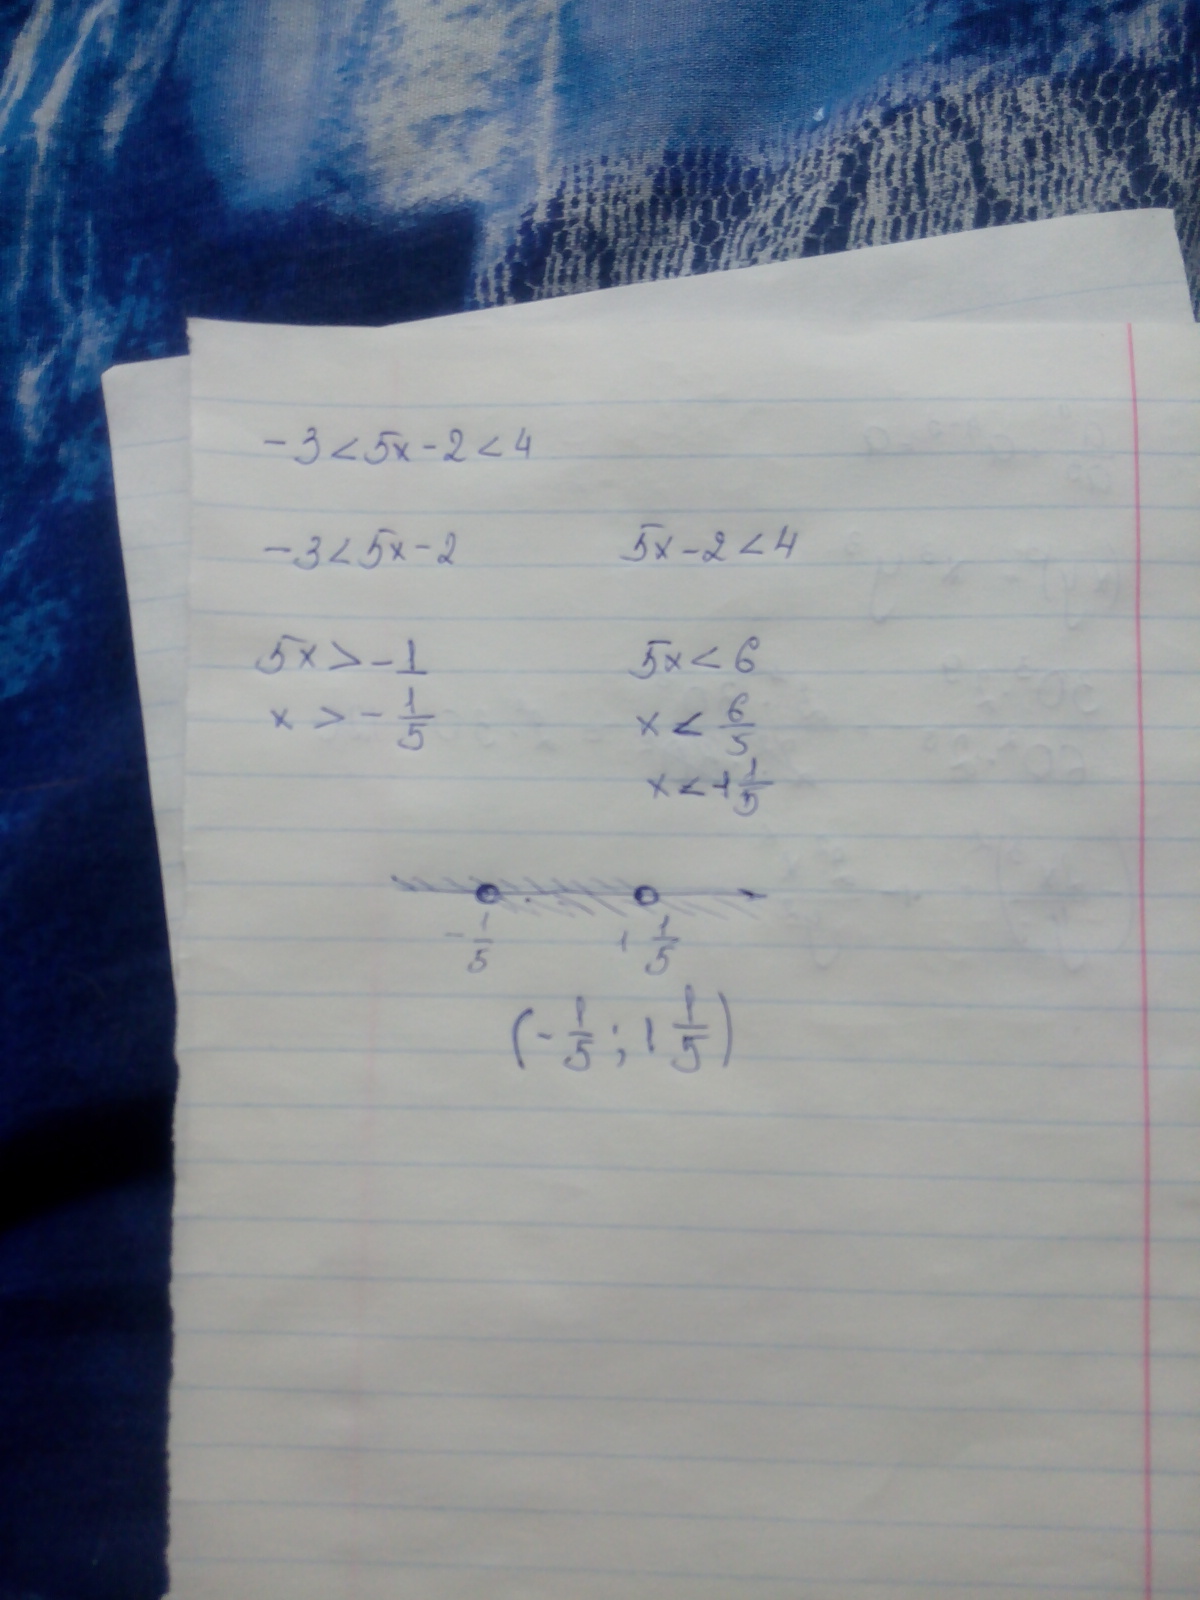 -3<5x-2<4
-3<5x-2 5x-2<4
5x>-1 5x<6
x>-1/5 x<6/5
x<1 1/5
-1/5 1 1/5
(-1/5; 1 1/5)